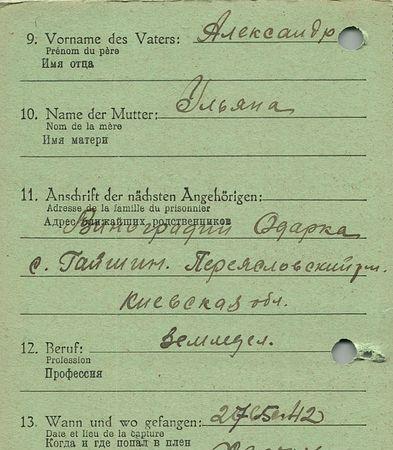 9. Vorname des Vaters: Александр
Prénom du père
Имя отца
10. Name der Mutter: Ульяна
Nom de la mère
Имя матери
11. Anschrift der nächsten Angehörigen:
Adresse de la famille du prisonnier
Адрес ближайших родственников
Одарка
с. Гайшин. Переясловский рн.
Киевская обл.
12. Beruf: Земледел.
Profession
Профессия
13. Wann und wo gefangen: 27.5.42
Date et lieu de la capture
Когда и где попал в плен